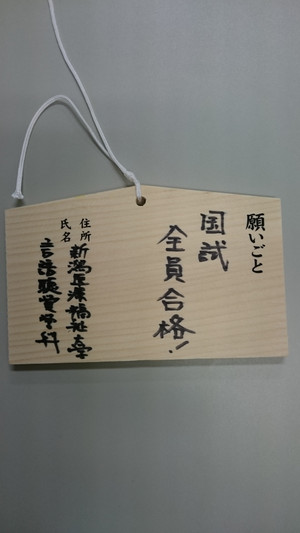 願いごと
国試
全員合格!
住所
氏名
新潟医療福祉大学
言語聴覚学科